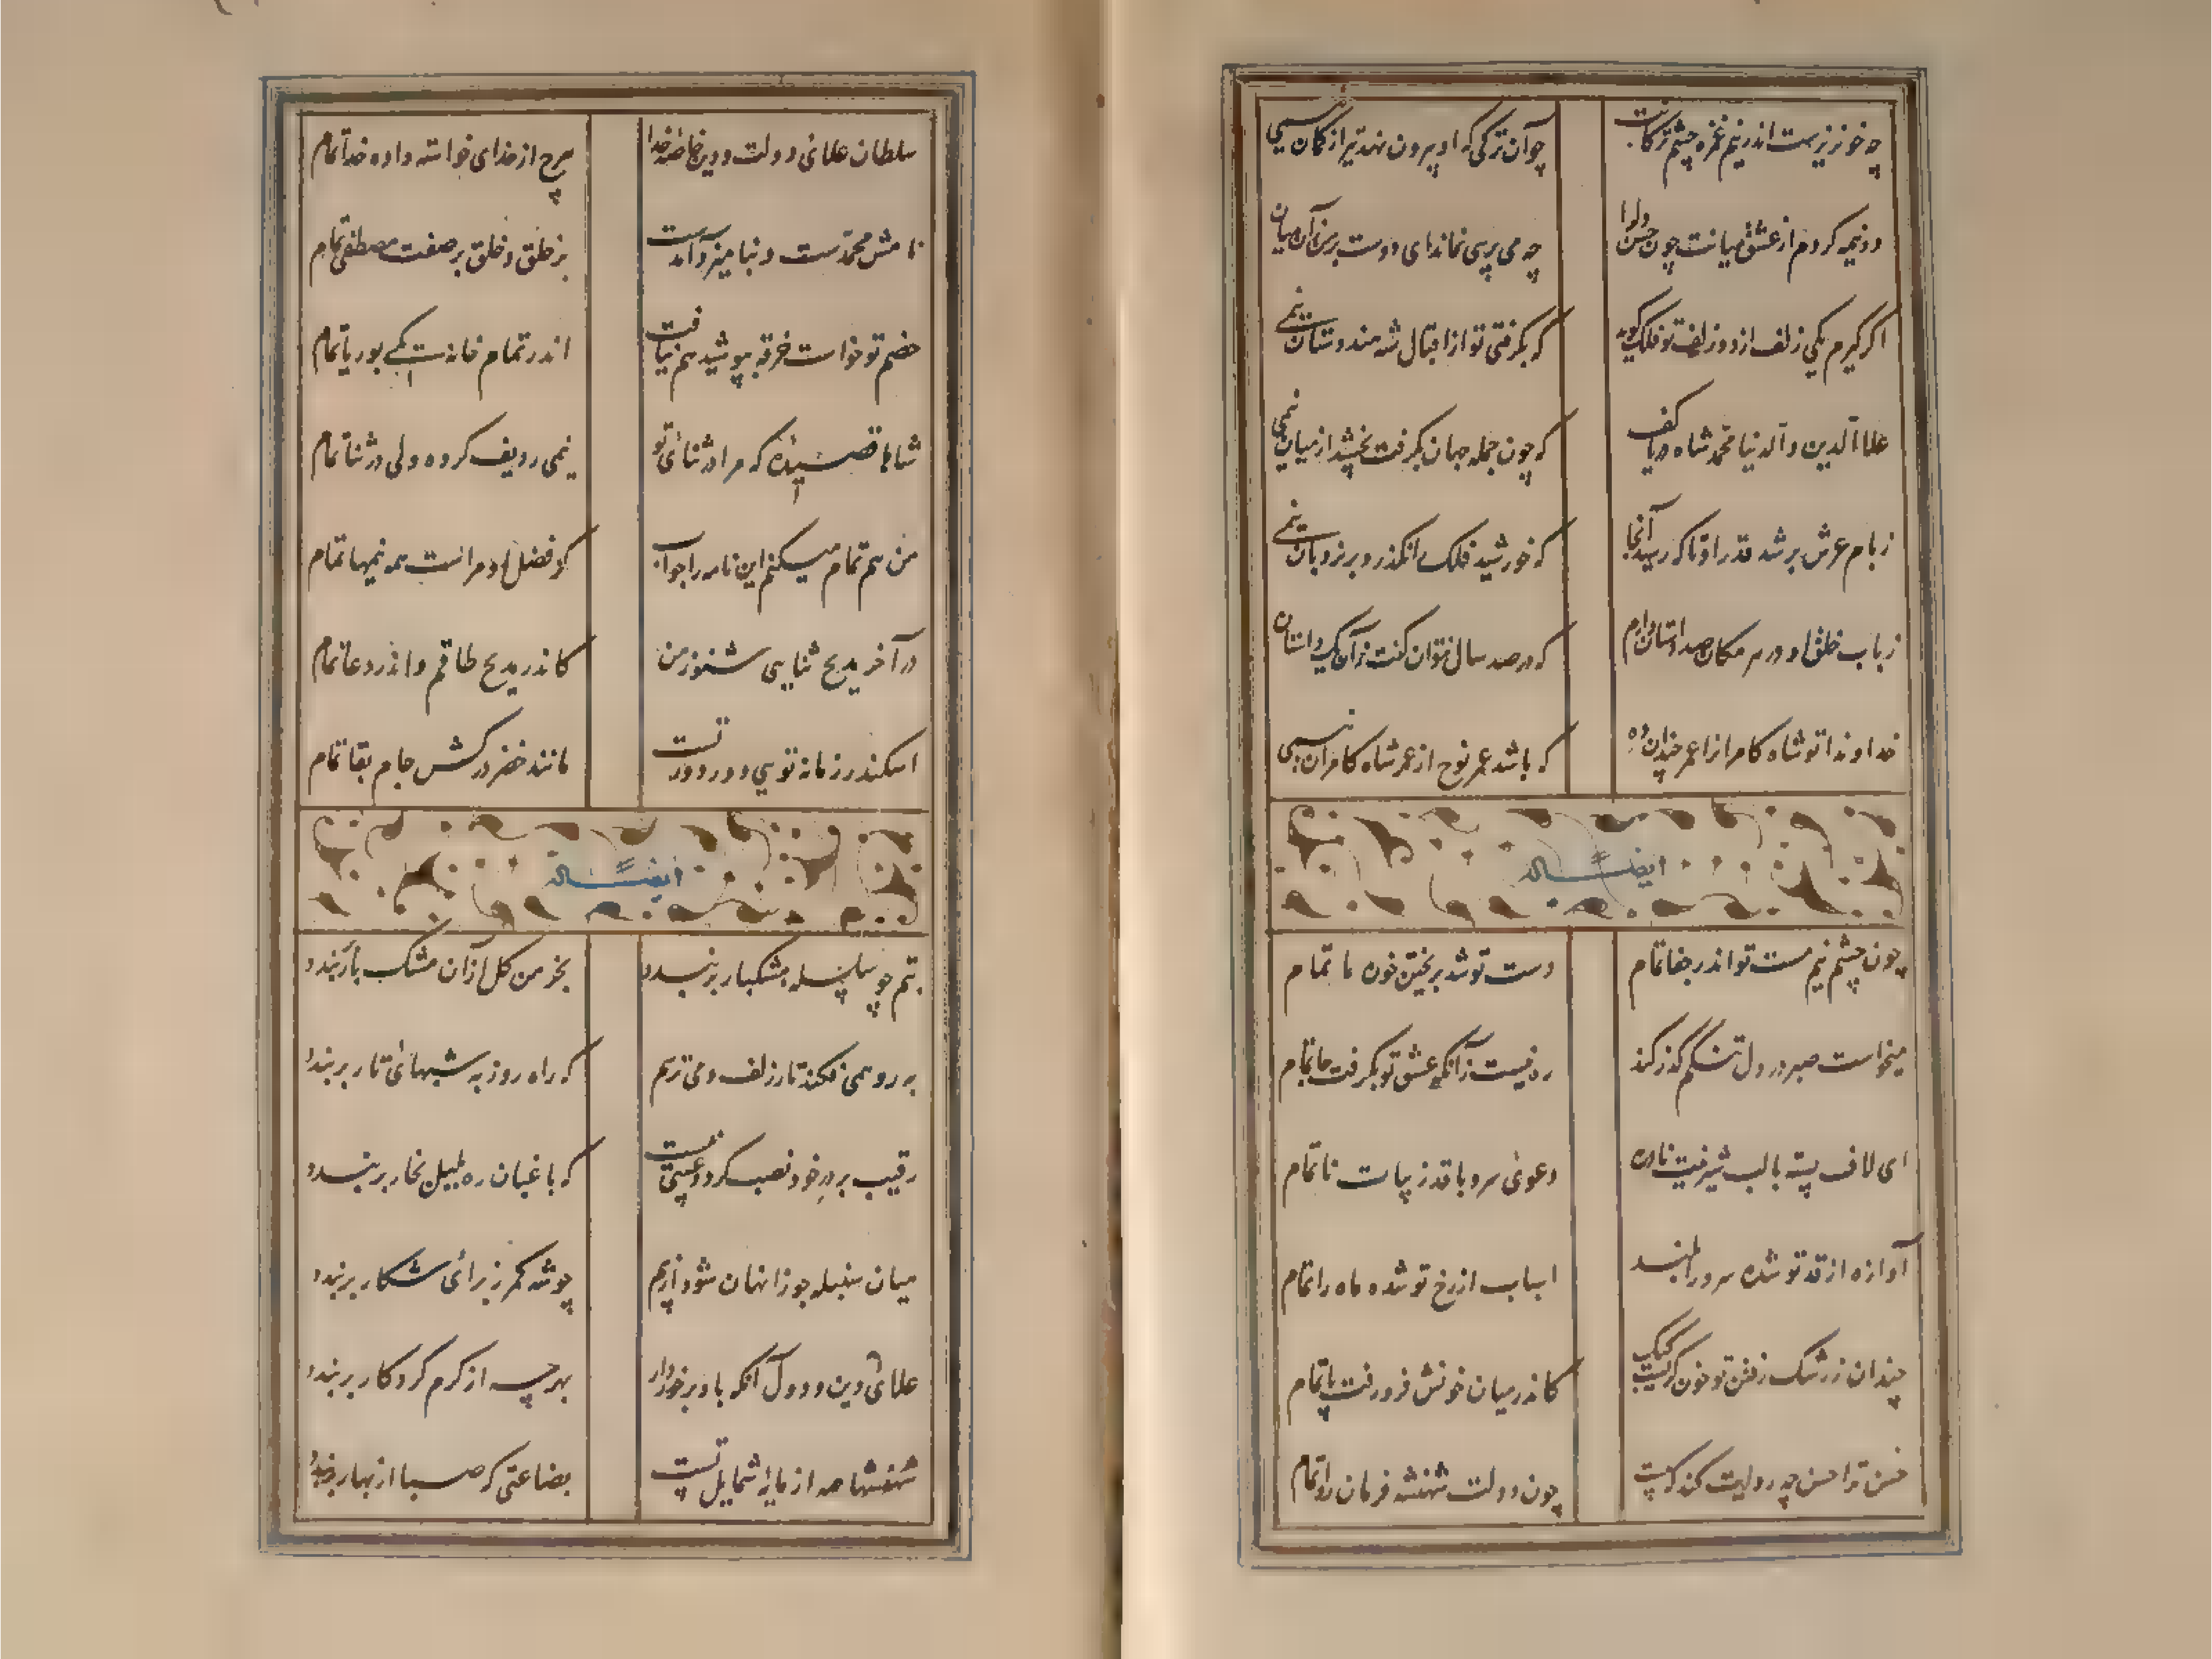 چه خونریز ست اندر نیم غمزه چشم ترکانت چو آن ترکی که او بیرون نهد تیر از کمان نیمی
دو نیمه کردم از عشق میانت چون حسن دل را چه می پرسی نماند ای دوست بر من زآن میان
اگر گیرم یکی زلف از دو زلف تو فلک گوید که بگرفتی تو از اقبال شه هندوستان نیمی
علاء الدین و الدنیا محمد شاه دریا کف که چون جمله جهان بگرفت بخشید از میان نیمی
ز بام عرش بر شد قدر او تا که رسید آنجا که خورشید فلک نگذرد بر نردبان نیمی
ز باب خلق او در هر مکان صد داستان دارم که در صد سال نتوان گفت زآن یک داستان
خداوندا تو شاه کامران را عمر چندان ده که باشد عمر نوح از عمر شاه کامران نیمی
ایضاً له
چون چشم نیم مست تو اندر جفا تمام دست تو شد بریختن خون ما تمام
میخواست صبر در دل تنگم گذر کند ره نیست زآنکه عشق تو بگرفت جا تمام
ای لاف پسته با لب شیرینت نادره دعوئ سرو با قد زیبات ناتمام
آوازه از قد تو شده سرو را بلند اسباب از رخ تو شده ماه را تمام
چندان ز رشک رفتن تو خون گریست کبک کاندر میان خونش فرو رفت پا تمام
حسن ترا حسن چه روایت کند که هست چون دولت شهنشه فرمان روا تمام
سلطان علائ دولت و دین خاصه خدا هرچ از خدای خواسته داده خدا تمام
نامش محمدست و نبا میزد آمدست بر خلق و خلق بر صفت مصطفی تمام
خصم تو خواست خرقه بپوشید هم نیافت اندر تمام خانه است یکی بوریا تمام
شاها قصیده که مرا در ثنائ تو نیمی ردیف کرده ولی در ثنا تمام
من هم تمام میکنم این نامه را جواب کز فضل او مراست همه نیمها تمام
در آخر مدیح ثنایی شنو ز من کاندر مدیح طاقم و اندر دعا تمام
اسکندر زمانه تویی و دور دور تست مانند خضر درکش جام بقا تمام
ایضاً له
بتم چو سلسله مشکبار بربندد بخرمن گل ازآن مشک بار بندد
به رو همی فکند تار زلف و می ترسم که راه روز به شبهائ تار بربندد
رقیب بر در خود نصب کرد و عیبی نیست که باغبان ره بلبل بخار بربندد
میان سنبله جوزا نهان شود از بیم چو شه کمر ز برائ شکار بربندد
علائ دین و دول آنکه باد برخوردار بهرچه از کرم کردگار بربندد
شهنشها صد از مایۀ شمایل تست بضاعتی که صبا از بهار بربندد